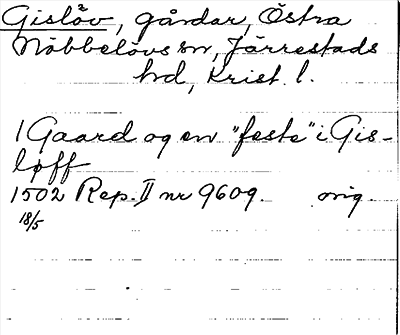 Gislöv, gårdar, Östra
Nöbbelövs sn, Järrestads
hd, Krist. l.
1 Gaard og en "feste" i Gis-
løff
1502 Rep. II nr 9609. orig.
18/5